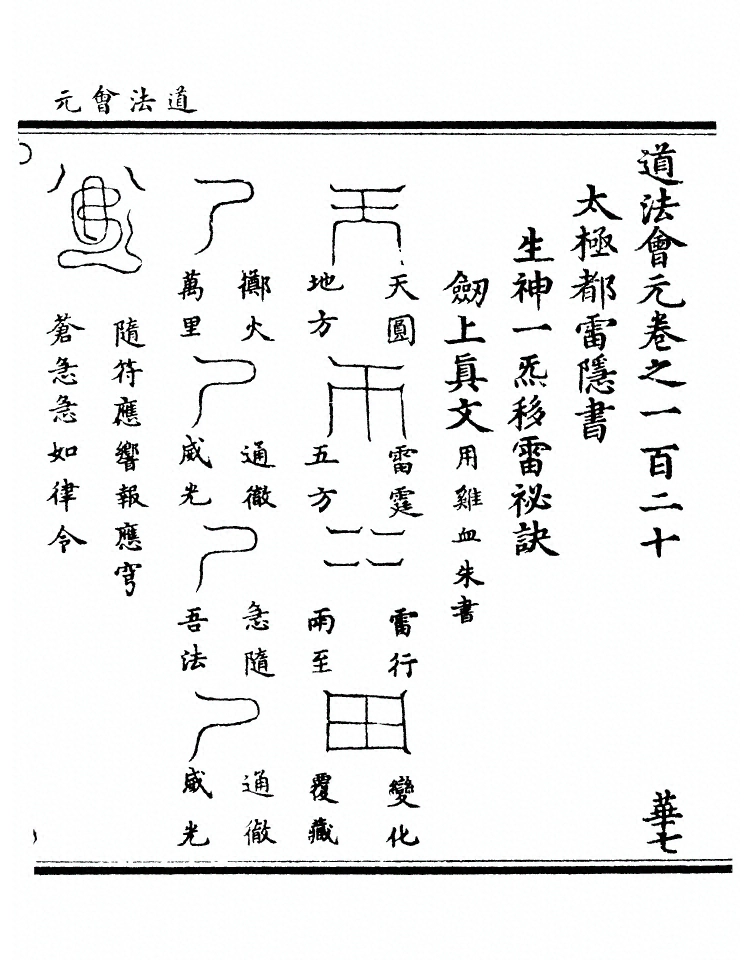 道法會元
道法會元卷之一百二十 華七
太極都雷隱書
生神一炁移雷祕訣
劒上眞文 用雞血朱書
天圓
地方
雷霆
五方
雷行
雨至
變化
覆藏
擲火
萬里
通徹
威光
急隨
吾法
通徹
威光
隨符應響報應穹
蒼急急如律令